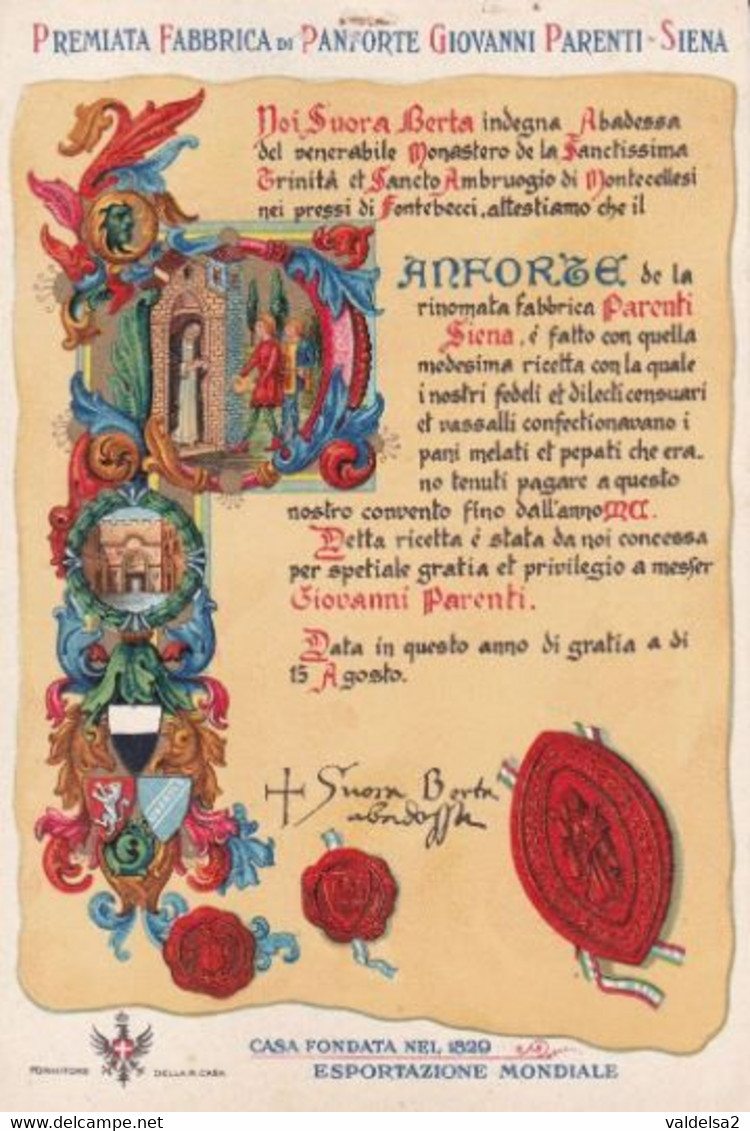 PREMIATA FABBRICA DI PANFORTE GIOVANNI PARENTI - SIENA
Noi Suora Berta indegna Abadessa
del venerabile Monastero de la Sanctissima
Trinità et Sancto Ambruogio di Montecellesi
nei pressi di Fontebecci, attestiamo che il
PANFORTE de la
rinomata fabbrica Parenti
Siena, é fatto con quella
medesima ricetta con la quale
i nostri fedeli et dilecti censuari
et vassalli confectionavano i
pani melati et pepati che era-
no tenuti pagare a questo
nostro convento fino dall'anno MCC.
Detta ricetta é stata da noi concessa
per spetiale gratia et privilegio a messer
Giovanni Parenti.
Data in questo anno di gratia a di
15 Agosto.
Suora Berta
abadessa
LIBERTAS
CASA FONDATA NEL 1829
FORNITORE DELLA R. CASA
ESPORTAZIONE MONDIALE
valdelsa2